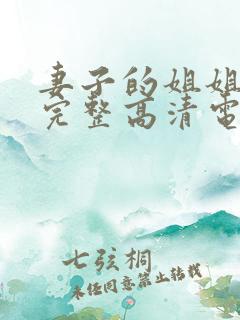 妻子的姐姐
完整高清电
七弦桐
未经同意禁止转载